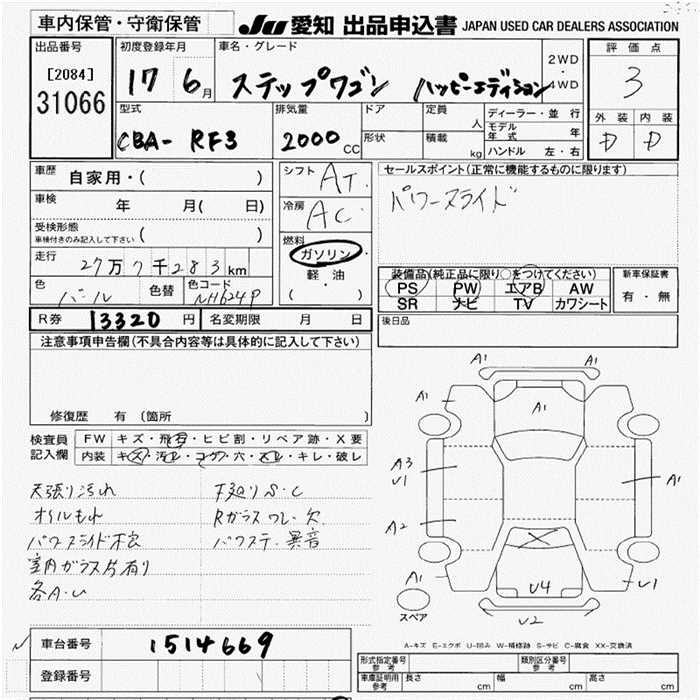 車内保管・守衛保管
JU 愛知 出品申込書 JAPAN USED CAR DEALERS ASSOCIATION
出品番号 初度登録年月 車名・グレード 2WD・4WD 評価点
[2084]
31066
17 6月 ステップワゴン ハッピーエディション 3
外装 内装
D D
型式 排気量 ドア 定員 人 ディーラー・並行
CBA- RF3 2000 CC 形状 積載 kg モデル年式 年
ハンドル 左・右
車歴 自家用・( )
シフト AT.
セールスポイント(正常に機能するものに限ります)
パワースライド
車検 年 月( 日)
冷房 AC
受検形態 ( )
車検付きのみ記入して下さい
燃料 ガソリン・軽油・( )
走行 27万7千283km
装備品(純正品に限り○をつけてください) 新車保証書
PS PW エアB AW 有・無
SR ナビ TV カワシート
色 パール 色替 色コード NH624P
R券 13320円 名変期限 月 日
後日品
注意事項申告欄(不具合内容等は具体的に記入して下さい)
修復歴 有 (箇所 )
検査員記入欄
FW キズ・飛石・ヒビ割・リペア跡・X要
内装 キズ・汚レ・コゲ・穴・スレ・キレ・破レ
天張り汚れ 下廻りS・C
オイルもれ Rガラスワレ・欠
パワースライド不良 パワステ・異音
室内ガラス片有り
各A・U
A1
A1 A1
A1
A3
U1
A2
A1 U4 U1
U2
スペア
A-キズ E-エクボ U-凹み W-補修跡 S-サビ C-腐食 XX-交換済
車台番号 1514669
登録番号
形式指定番号 参考 類別区分番号 参考
車庫証明用 参考 長さ cm 幅 cm 高さ cm